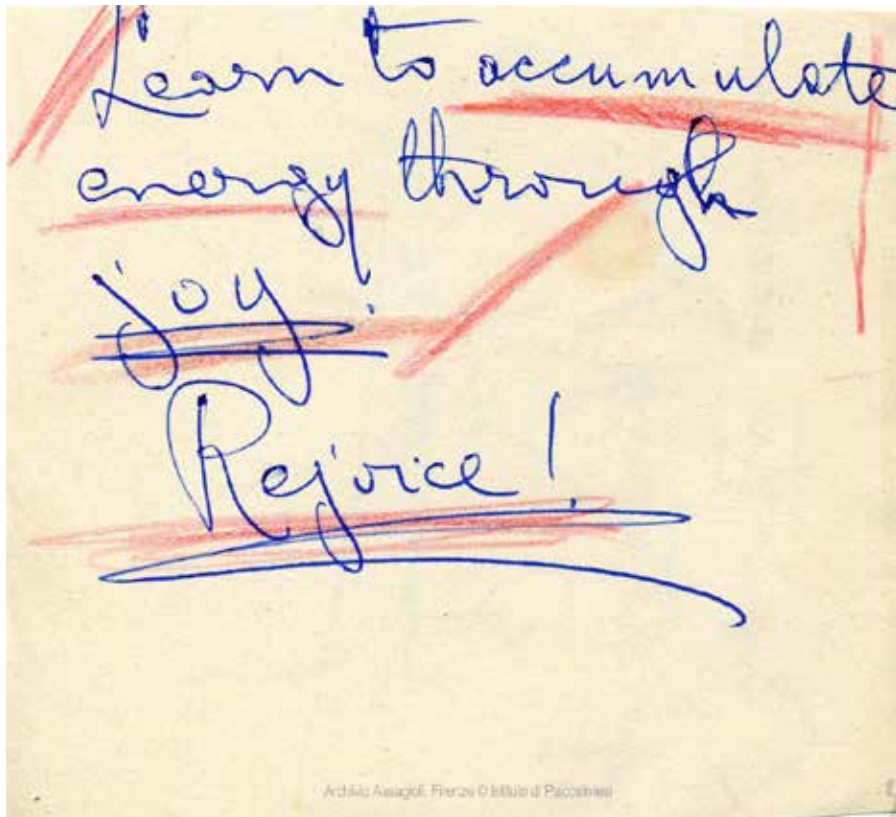 Learn to accumulate
energy through
joy!
Rejoice!
Archivio Assagioli, Firenze © Istituto di Psicosintesi